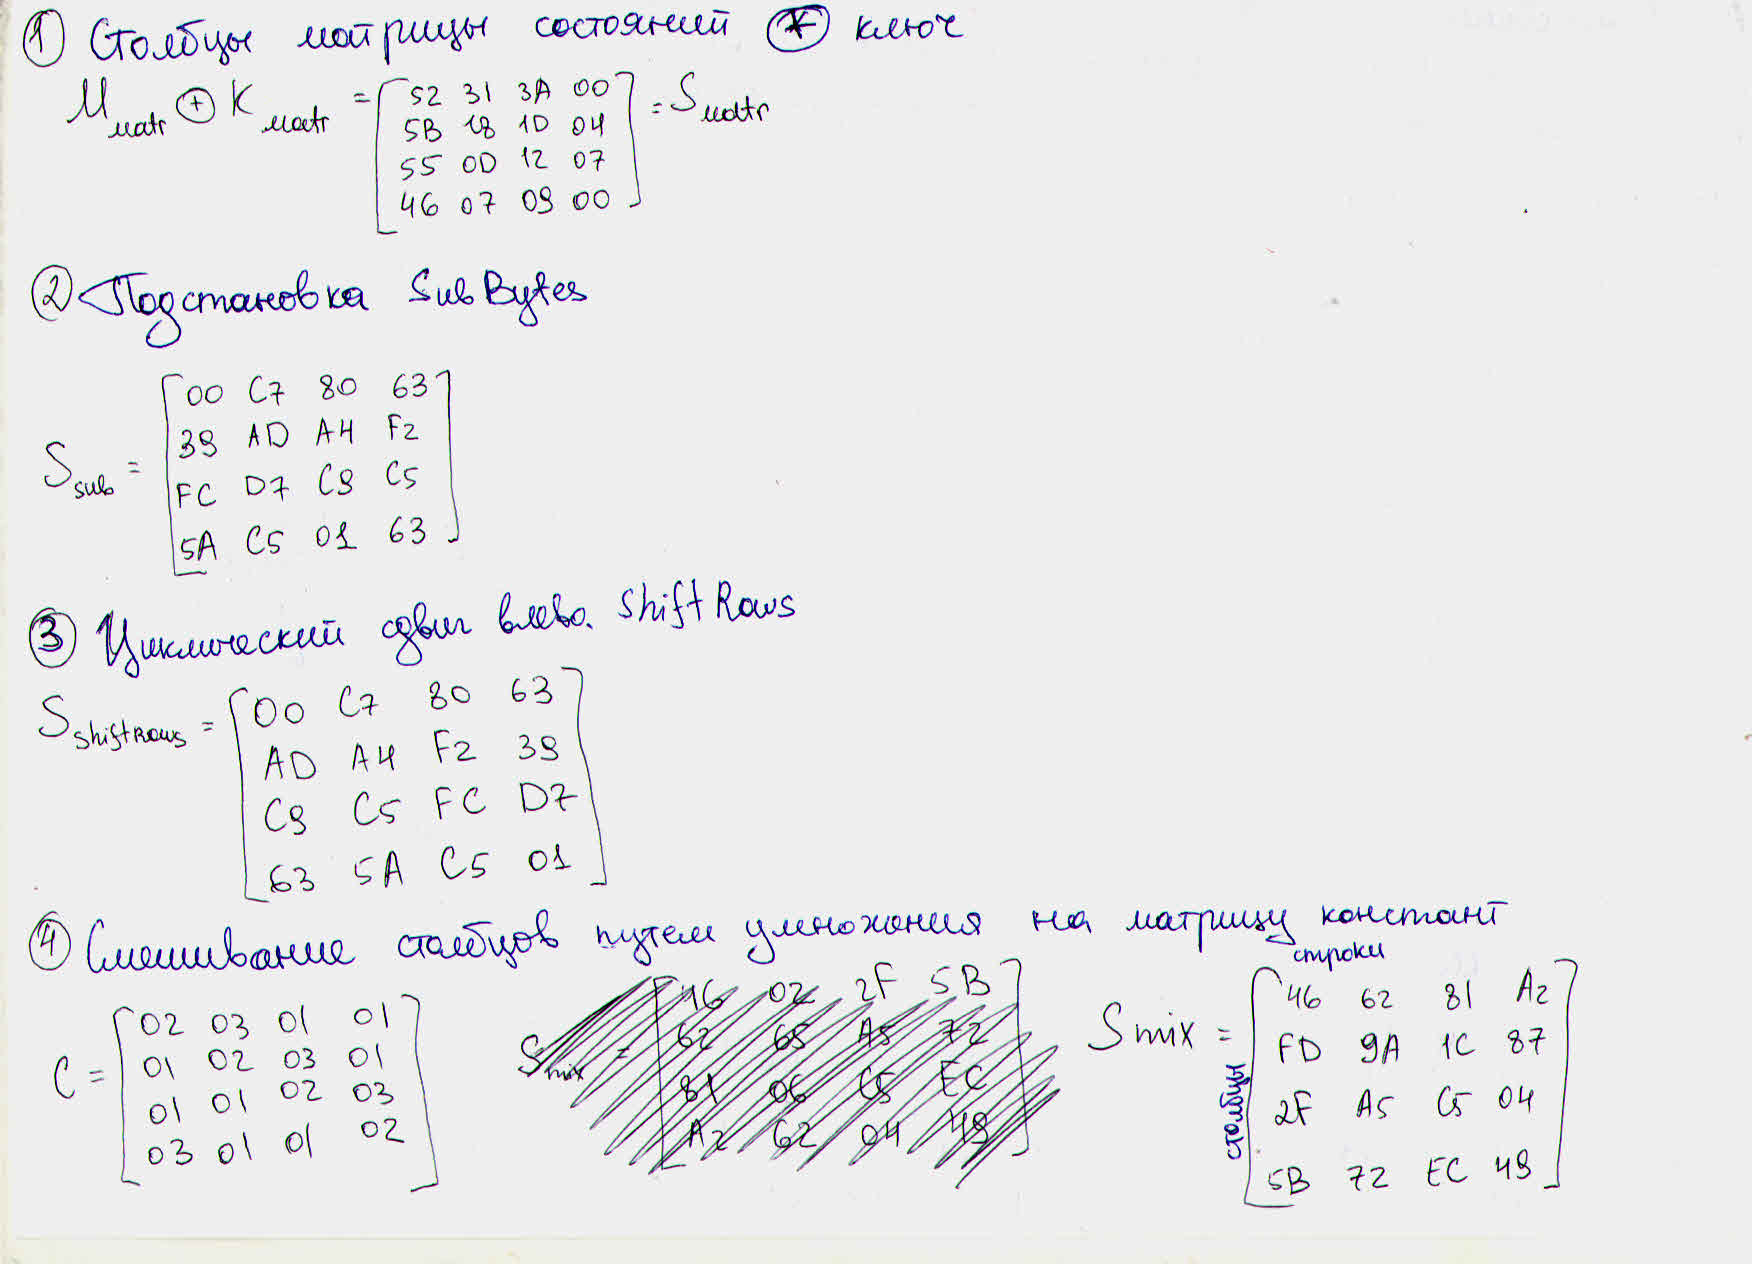 ① Столбцы матрицы состояний ⊛ ключ
M matr ⊕ K matr = [ 52 31 3A 00 ] = S matr
5B 18 1D 04
55 0D 12 07
46 07 09 00
② Подстановка SubBytes
00 C7 80 63
39 AD A4 F2
S sub =
FC D7 C9 C5
5A C5 01 63
③ Циклический сдвиг влево. ShiftRows
S ShiftRows = [ 00 C7 80 63 ]
AD A4 F2 39
C9 C5 FC D7
63 5A C5 01
④ Смешивание столбцов путем умножения на матрицу констант
C =
02 03 01 01
01 02 03 01
01 01 02 03
03 01 01 02
S mix =
02 2F 5B
62 65 A5 72
81 06 C5 EC
A2 62 04 49
строки
столбцы
S mix =
46 62 81 A2
FD 9A 1C 87
2F A5 C5 04
5B 72 EC 49